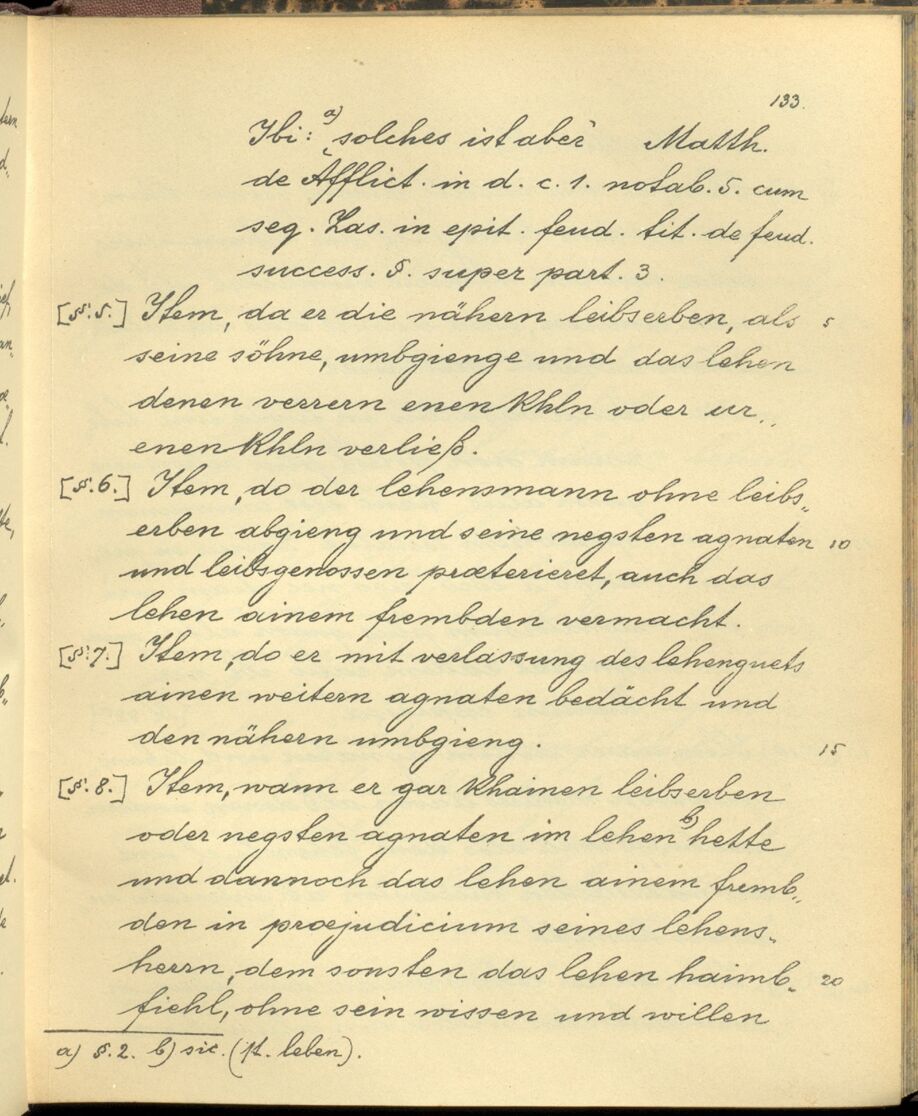 133.
Ibi: a) „solches ist aber" Matth.
de Afflict. in d. c. 1. notab. 5. cum
seq. Zas. in epit. feud. tit. de feud.
success. §. super part. 3.
[§. 5.] Item, da er die nähern leibserben, als 5
seine söhne, umbgienge und das lehen
denen verrern enenkhln oder ur„
enenkhln verließ.
[§. 6.] Item, do der lehensmann ohne leibs„
erben abgieng und seine negsten agnaten 10
und leibsgenossen præterieret, auch das
lehen ainem frembden vermacht.
[§. 7.] Item, do er mit verlassung des lehenguets
ainen weitern agnaten bedächt und
den nähern umbgieng. 15
[§. 8.] Item, wann er gar khainen leibserben
oder negsten agnaten im lehen b) hette
und dannoch das lehen ainem fremb„
den in præjudicium seines lehens„
herrn, dem sonsten das lehen haimb„ 20
fiehl, ohne sein wissen und willen
a) §. 2. b) sic. (st. leben).